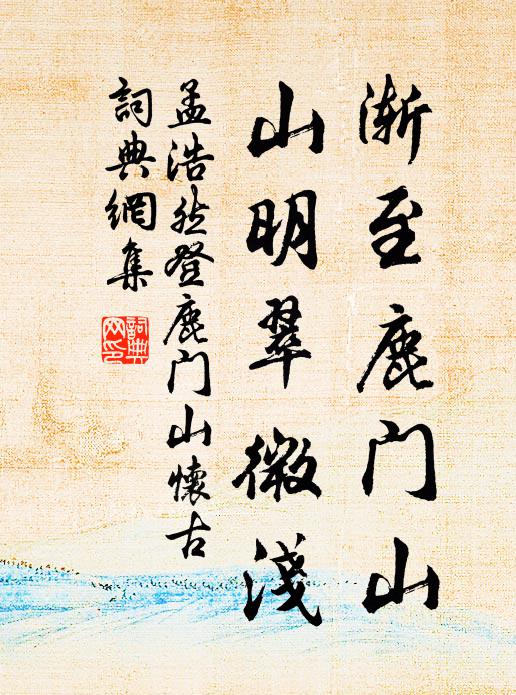 渐至鹿门山
山明翠微淺
孟浩然登鹿门山懷古
詞典網集
詞典
网印